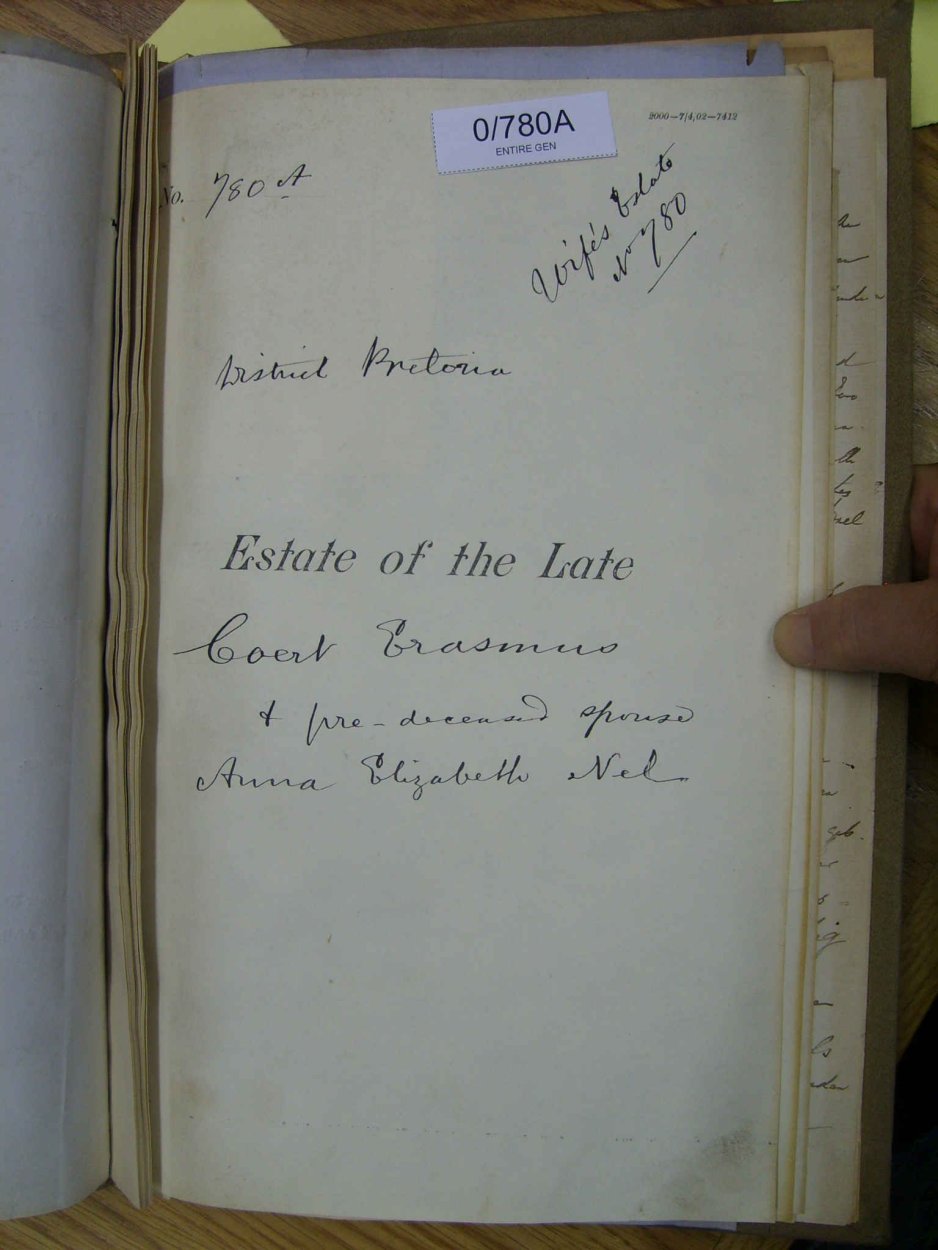 0/780A
ENTIRE GEN
2000—7/4,02—7412
No. 780 A
Wife's Estate
No 780
District Pretoria
Estate of the Late
Coert Erasmus
& pre-deceased spouse
Anna Elizabeth Nel